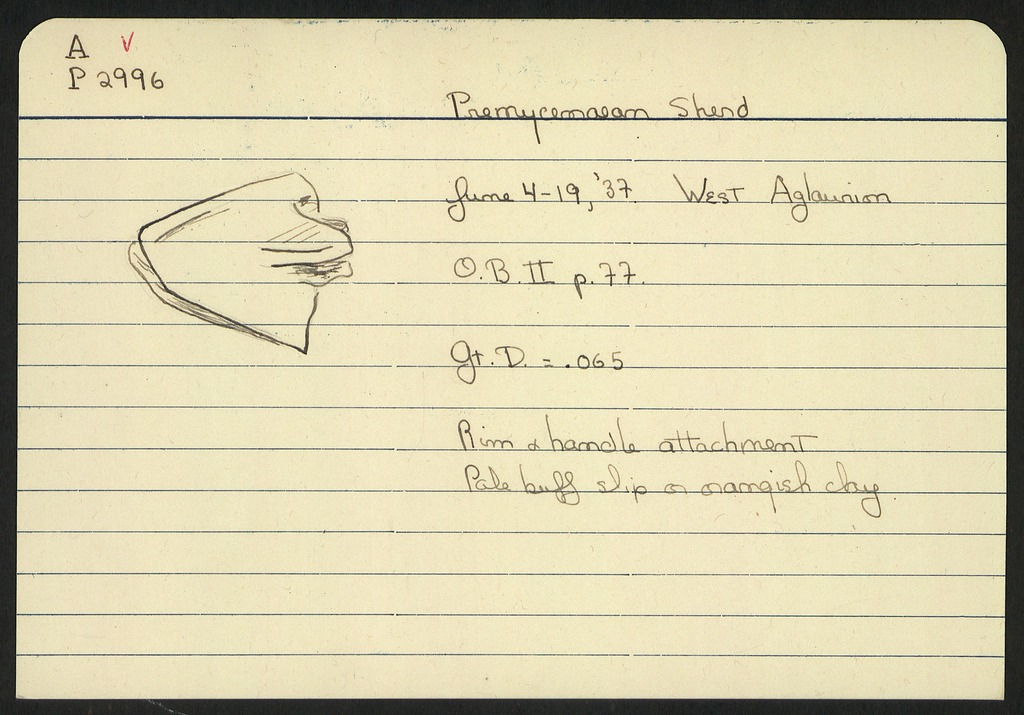 A ✓
P 2996
Premycenaean Sherd
June 4-19, '37. West Aglaurion
O.B. II p. 77.
Gt. D. = .065
Rim & handle attachment
Pale buff slip on orangish clay